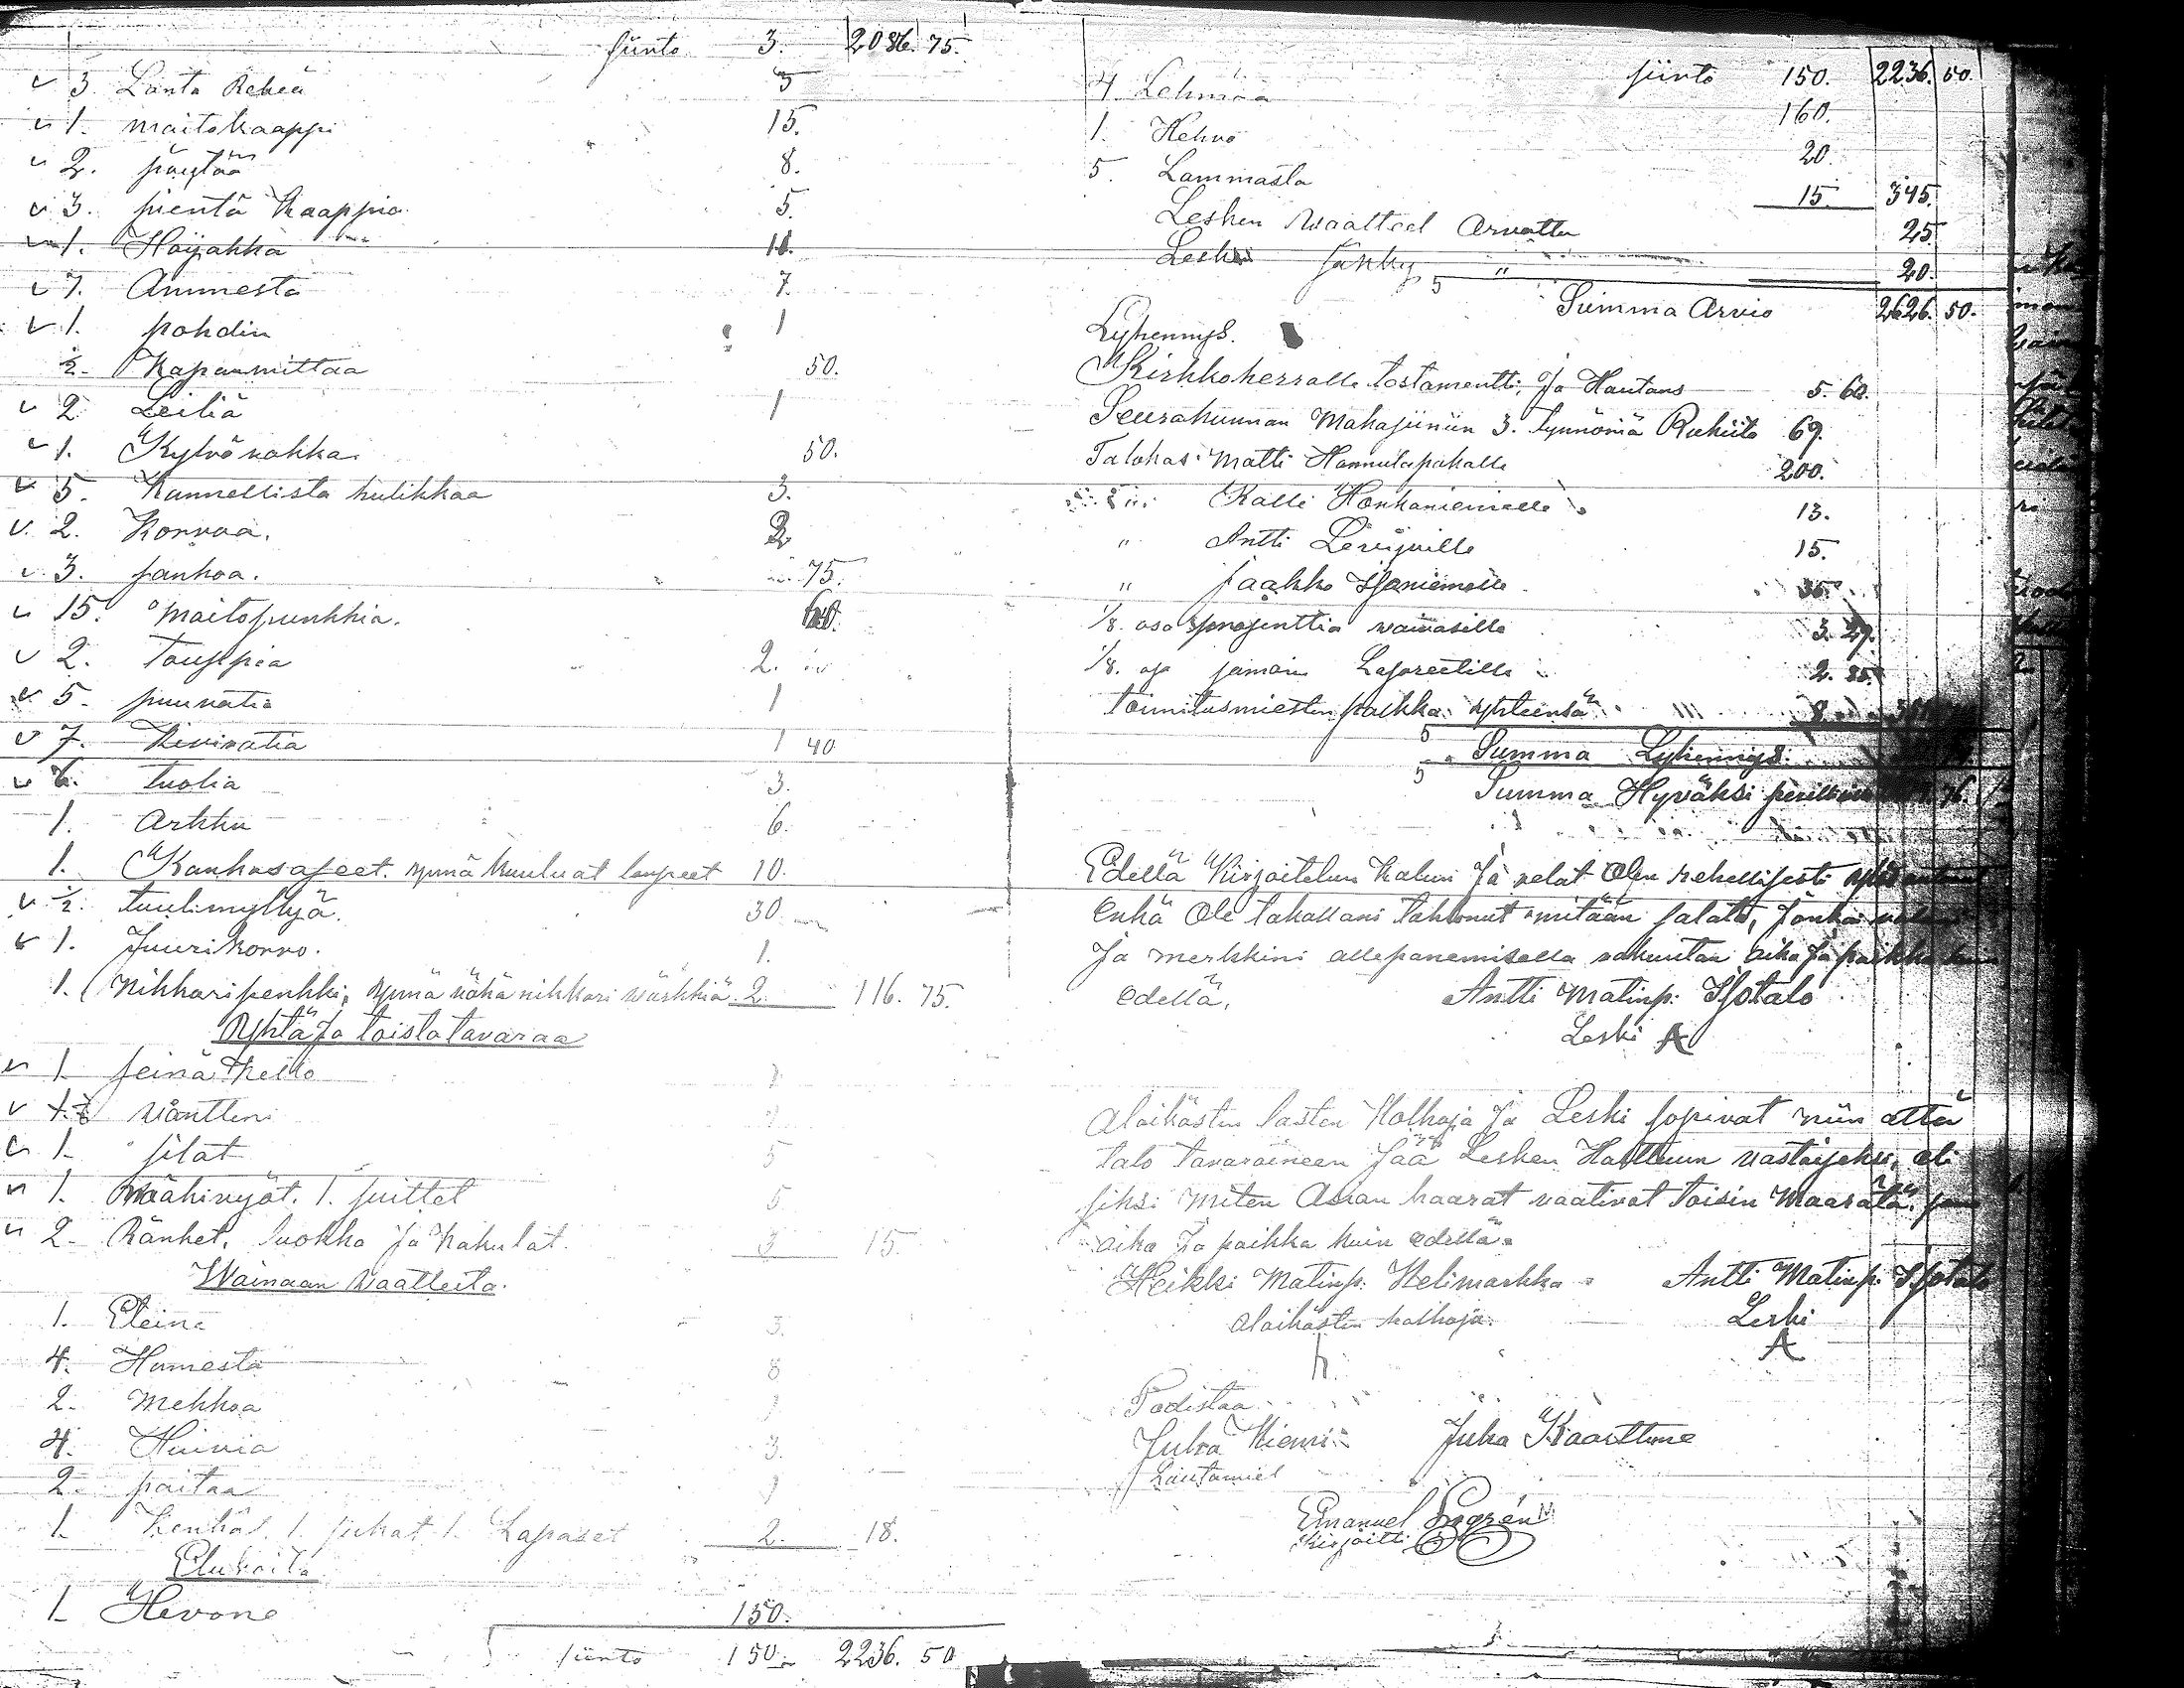 siirto 3. 2086. 75.
3 Lanta Rekeä 3
1. maitokaappi 15.
2. pöytää 8.
3. pientä kaappia 5.
1. 
7. Ammesta 7.
1. pohdin 1
½ Kapanmittaa 50.
2 Leiliä 1
1. Kylvövakka 50.
5. Kannellista kulikkaa 3.
2. Korvaa. 2
3. sankoa. 75.
15. maitopunkkia.
2. 2.
5. puuvatia 1
7. Kivivatia 1 40
6. tuolia 3.
1. Arkku 6.
1. Kankas ynnä kuuluvat 10.
½. tuulimyllyä. 30
1. Juurikorvo. 1.
1. Nikkaripenkki, ynnä vähä nikkari wärkkiä 2 116. 75.
Yhtä Ja toista tavaraa
1. seinä Kello
wäntteri
1. silat 5
1. mähivyöt. 1. suittet 5
2. Ränket, luokka Ja Kakulat. 3 15.
Wainaan Waatteita.
1. 3.
4. 8
2. Mekkoa
4. Huivia 3.
2. paitaa
1. 1. sukat 1. Lapaset 2. 18.
Elukoita
1 Hevone 150.
siirto 150 2236. 50
siirto 150. 2236. 50.
4. Lehmää 160.
1. Hehvo 20.
5. Lammasta 15. 345.
Lesken Waatteet Arvattu 25.
Lesken sänky " 20.
Summa Arvio 2626. 50.
Lyhennys.
Kirkkoherralle testamentti, Ja Hautaus 5. 60.
Seurakunnan Makasiiniin 3. tynnöriä Rukiita 69.
Talokas Matti Hannulapakalle 200.
Kalli Honkaniemelle 13.
" Antti 15.
" Jaakko 35.
1/8. osa prosenttia waivasille 3. 29.
1/8. osa samoin Lasareetille 2. 85.
toimitusmiesten palkka yhteensä 8
Summa Lyhennys.
Summa Hyväksi 76.
Edellä Kirjoitetun Kalun Ja velat Olen rehellisesti
Enkä Ole tahallani tahtonut mitään salata, Jonka
Ja merkkini allepanemisella vakuutan aika Ja paikka kuin
edellä. Antti Matinp. Isotalo
Leski A
Alaikästen lasten Holhoja Ja Leski sopivat niin että
talo tavaroineen Jää Lesken Haltuun vastaiseksi, eli
siksi miten Asian haarat vaativat toisin Määrätä.
aika Ja paikka kuin edellä.
Heikki Matinp. Helimarkka Antti Matinp. Isotalo
alaikästen holhoja. Leski
A
Todistaa
Juha Niemi Juha Kaarttune
Lautamies
Emanuel
kirjoitti